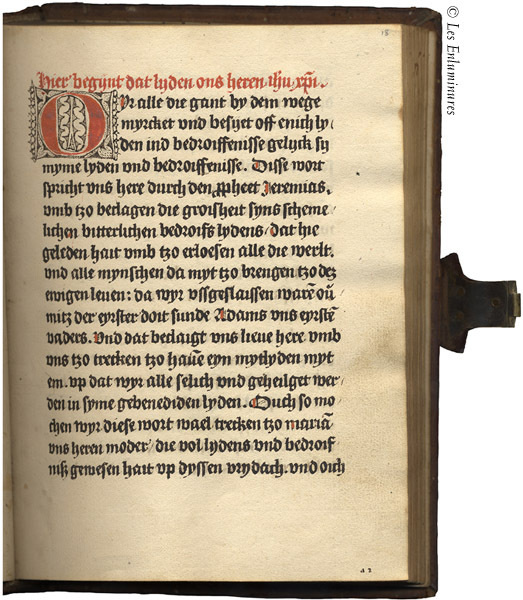 Hier begijnt dat lyden ons heren ihu xpi.
O yr alle die gant by dem wege
myrcket vnd besyet off enich ly/
den ind bedroiffenisse gelyck sy
myme lyden vnd bedroiffenisse. Disse wort
spricht vns here durch den ꝓpheet Jeremias.
vmb tzo beclagen die groisheit syns scheme/
lichen bitterlichen bedroifs lydens/ dat hie
geleden hait vmb tzo erloesen alle die werlt.
vnd alle mynschen da myt tzo brengen tzo dez
ewigen leuen: da wyr vssgeslaissen warē ou̅
mitz der eyrster doit sunde Adams vns eyrstē
vaders. Vnd dat beclaigt vns lieue here vmb
vns tzo trecken tzo hauē eyn mytlyden myt
em. vp dat wyr alle selich vnd geheilget wer/
den in syme gebenediden lyden. Ouch so mo/
chen wyr diese wort wael trecken tzo mariā
vns heren moder/ die vol lydens vnd bedroif/
niß gewesen hait vp dyssen vrydach. vnd ouch
18
a 2
© Les Enluminures